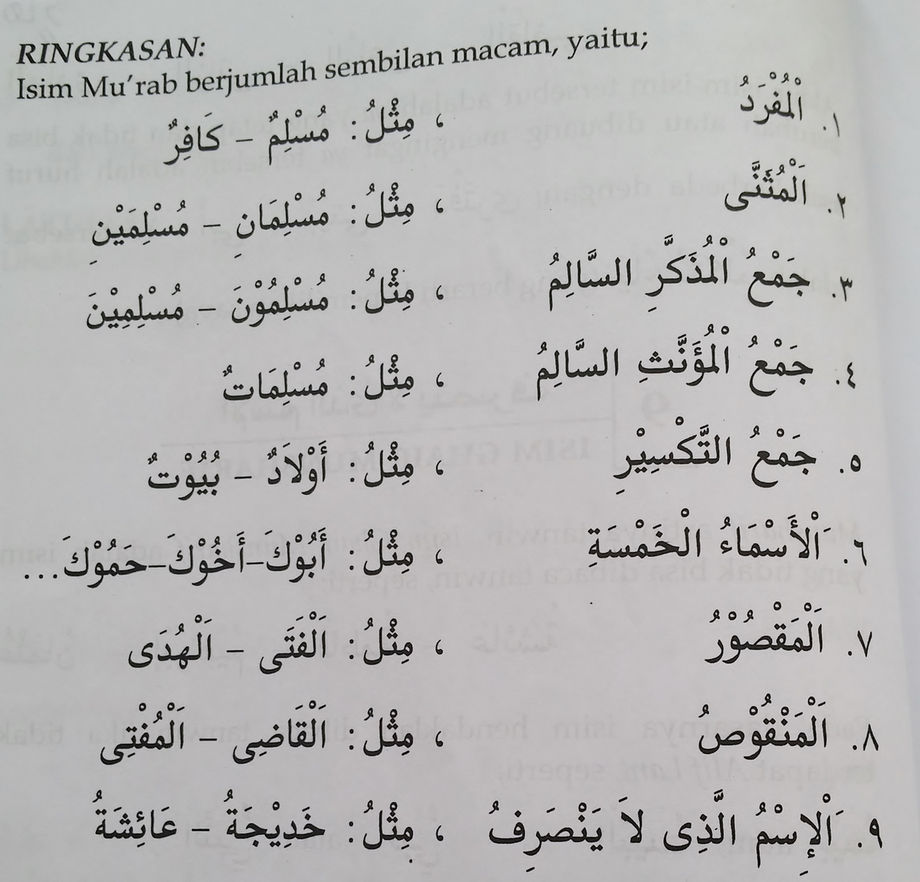 RINGKASAN:
Isim Mu'rab berjumlah sembilan macam, yaitu;
١. اَلْمُفْرَدُ ، مِثْلُ: مُسْلِمٌ – كَافِرٌ
٢. اَلْمُثَنَّى ، مِثْلُ: مُسْلِمَانِ – مُسْلِمَيْنِ
٣. جَمْعُ الْمُذَكَّرِ السَّالِمُ ، مِثْلُ: مُسْلِمُوْنَ – مُسْلِمِيْنَ
٤. جَمْعُ الْمُؤَنَّثِ السَّالِمُ ، مِثْلُ: مُسْلِمَاتٌ
٥. جَمْعُ التَّكْسِيْرِ ، مِثْلُ: أَوْلَادٌ – بُيُوْتٌ
٦. اَلْأَسْمَاءُ الْخَمْسَةِ ، مِثْلُ: أَبُوْكَ–أَخُوْكَ–حَمُوْكَ...
٧. اَلْمَقْصُوْرُ ، مِثْلُ: اَلْفَتَى – اَلْهُدَى
٨. اَلْمَنْقُوْصُ ، مِثْلُ: اَلْقَاضِى – اَلْمُفْتِى
٩. اَلْإِسْمُ الَّذِى لاَ يَنْصَرِفُ ، مِثْلُ: خَدِيْجَةُ – عَائِشَةُ